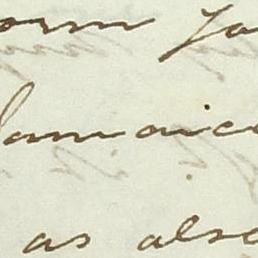 orm yo
Jamaica
as also